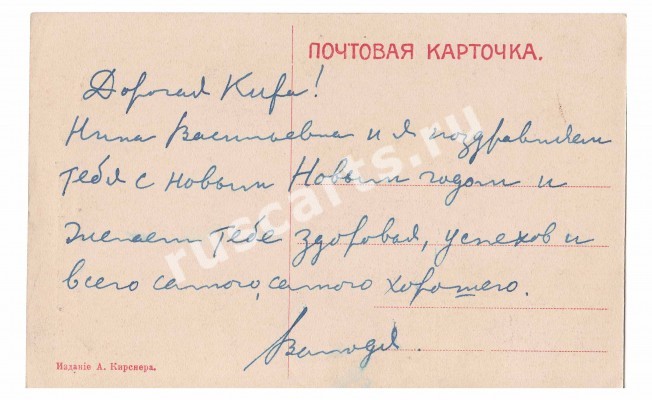 ПОЧТОВАЯ КАРТОЧКА.
Дорогая Кира!
Нина Васильевна и я поздравляем
тебя с новым Новым годом и
желаем тебе здоровья, успехов и
всего самого, самого хорошего.
Володя
Изданіе А. Кирснера.
ruscarts.ru